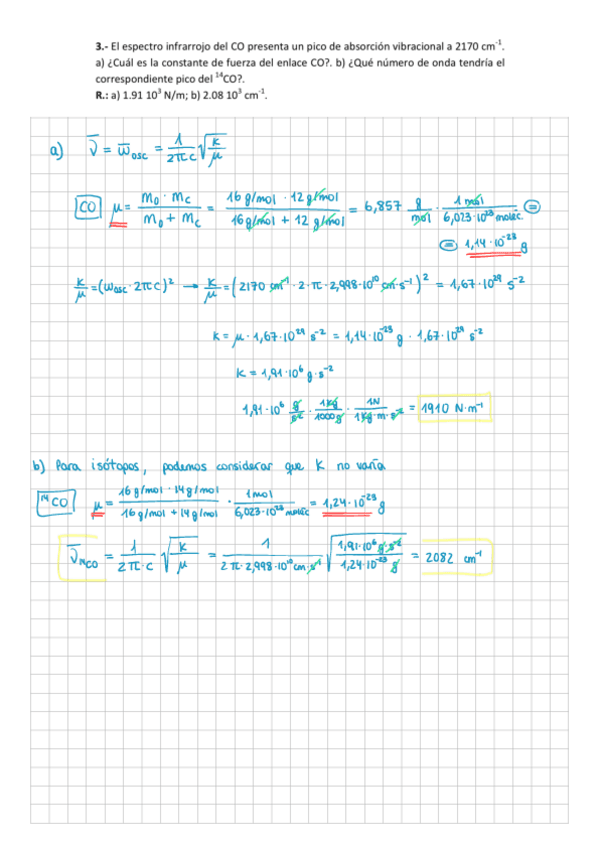 3.- El espectro infrarrojo del CO presenta un pico de absorción vibracional a 2170 cm⁻¹.
a) ¿Cuál es la constante de fuerza del enlace CO?. b) ¿Qué número de onda tendría el
correspondiente pico del ¹⁴CO?.
R.: a) 1.91 10³ N/m; b) 2.08 10³ cm⁻¹.
a) ν̄ = ω̄osc = 1/(2πc) √(k/μ)
CO μ = (mO · mC)/(mO + mC) = (16 g/mol · 12 g/mol)/(16 g/mol + 12 g/mol) = 6,857 g/mol · 1 mol/(6,023·10²³ moléc) =
= 1,14·10⁻²³ g
k/μ = (ωosc · 2πc)² → k/μ = (2170 cm⁻¹ · 2·π·2,998·10¹⁰ cm·s⁻¹)² = 1,67·10²⁹ s⁻²
k = μ · 1,67·10²⁹ s⁻² = 1,14·10⁻²³ g · 1,67·10²⁹ s⁻²
k = 1,91·10⁶ g·s⁻²
1,91·10⁶ g/s² · 1Kg/1000g · 1N/(1Kg·m·s⁻²) = 1910 N·m⁻¹
b) Para isótopos, podemos considerar que K no varía
¹⁴CO μ = (16 g/mol · 14 g/mol)/(16 g/mol + 14 g/mol) · 1mol/(6,023·10²³ moléc) = 1,24·10⁻²³ g
ν̄¹⁴CO = 1/(2π·c) √(k/μ) = 1/(2π·2,998·10¹⁰ cm·s⁻¹) √(1,91·10⁶ g·s⁻²/1,24·10⁻²³ g) = 2082 cm⁻¹